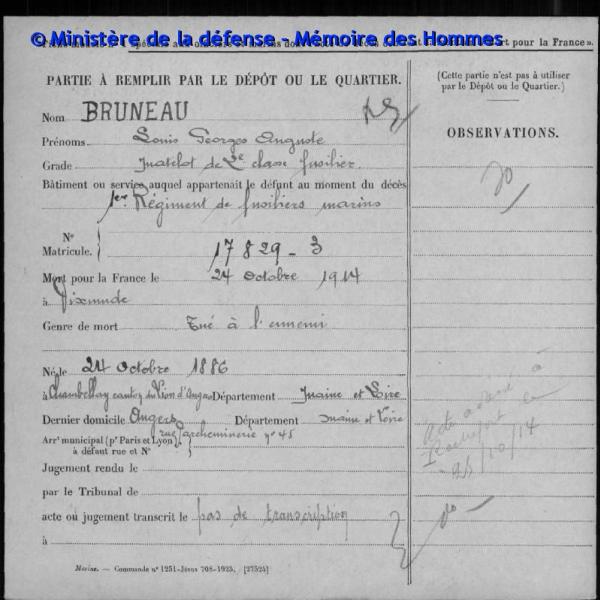 © Ministère de la défense - Mémoire des Hommes
ort pour la France ».
PARTIE À REMPLIR PAR LE DÉPÔT OU LE QUARTIER.
(Cette partie n'est pas à utiliser
par le Dépôt ou le Quartier.)
Nom BRUNEAU
OBSERVATIONS.
Prénoms Louis Georges Auguste
Grade Matelot de 2e classe fusilier
Bâtiment ou service auquel appartenait le défunt au moment du décès
1er Régiment de fusiliers marins
N°
Matricule. 17829-3
Mort pour la France le 24 Octobre 1914
à Dixmude
Genre de mort Tué à l'ennemi
Né le 24 Octobre 1886
à Chambellay canton du Lion d'Angers Département Maine et Loire
Dernier domicile Angers Département Maine et Loire
rue Parcheminerie n° 45
Arrt municipal (pr Paris et Lyon),
à défaut rue et N°
Acte adressé à
Rochefort le
25/10/14
Jugement rendu le
par le Tribunal de
acte ou jugement transcrit le pas de transcription
à
Marine. — Commande n° 1251-Jésus 708-1925. [27524]